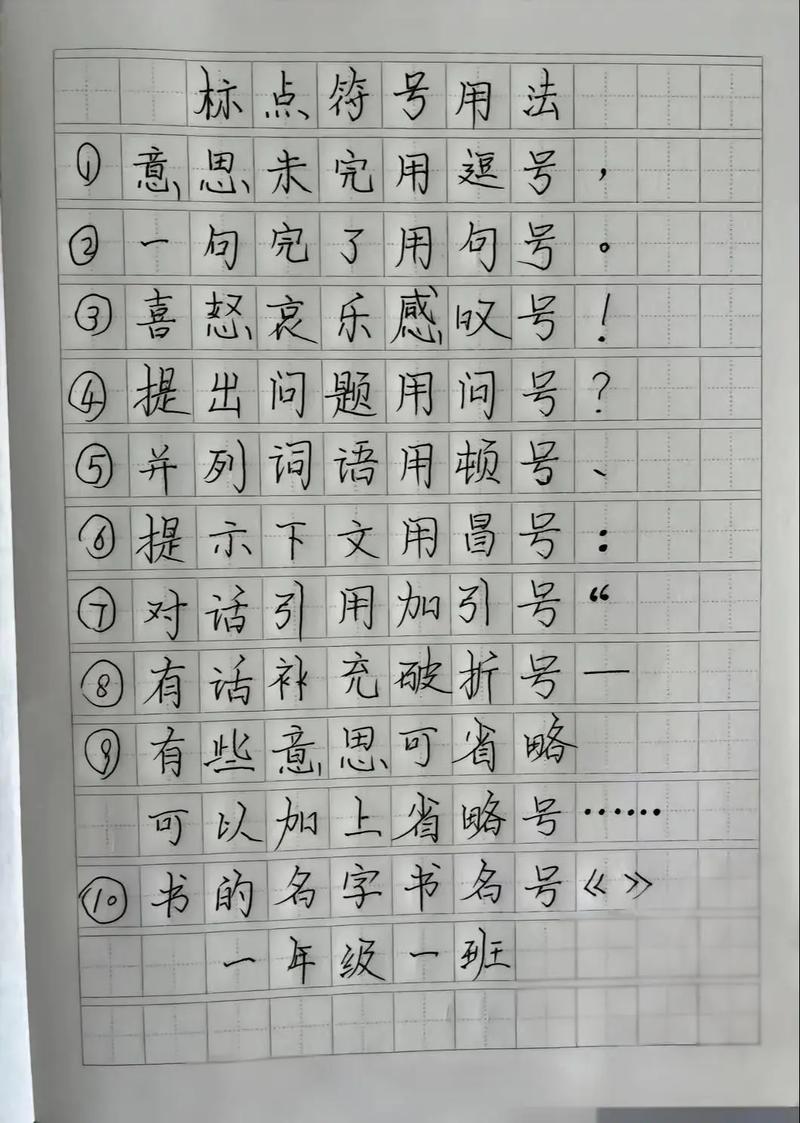 标点符号用法
①意思未完用逗号，
②一句完了用句号。
③喜怒哀乐感叹号！
④提出问题用问号？
⑤并列词语用顿号、
⑥提示下文用冒号：
⑦对话引用加引号“
⑧有话补充破折号—
⑨有些意思可省略
可以加上省略号……
⑩书的名字书名号《》
一年级一班